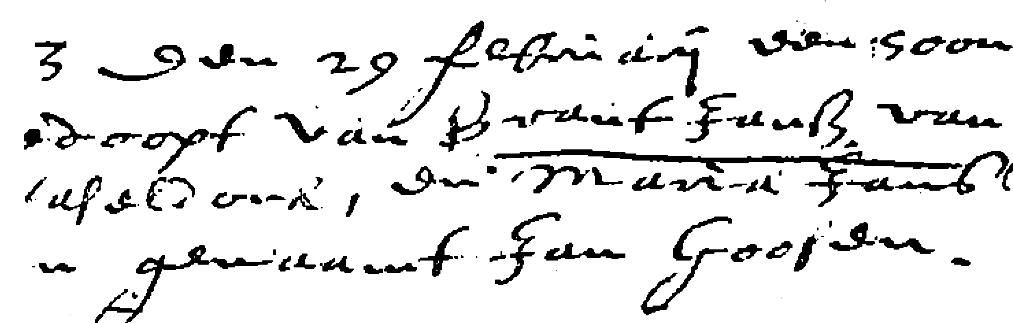 3 Den 29 februarij een soon
edoopt van Brant Jansz. van
aseldonk, en Maria Jans
n genaamt Jan Goosen.